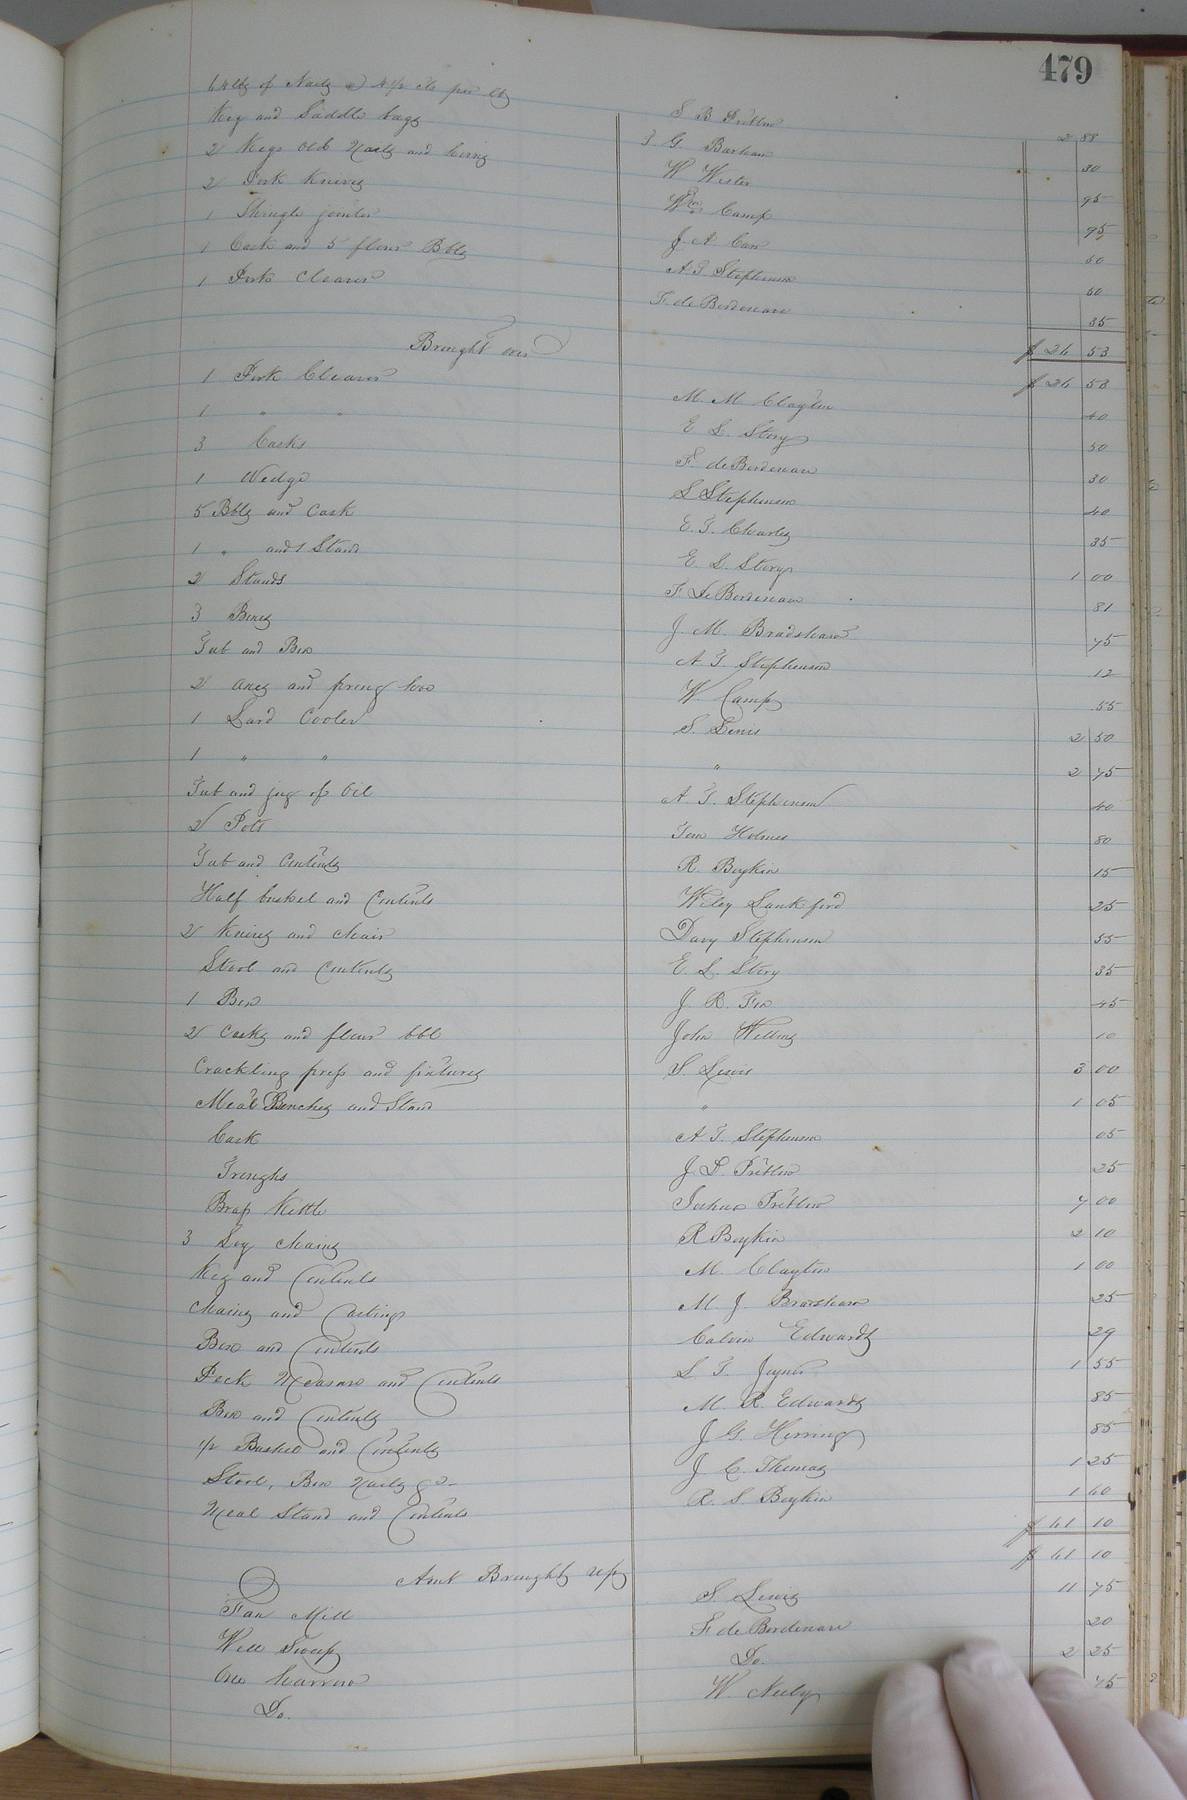 479
64 lbs of Nails @ 4 1/2 cts per lb S B Pretlow 2 88
Keg and Saddle bags 3 G Barham 30
2 Kegs Old Nails and hooks W Wester 95
2 Pork Knives Wm Camp 95
1 Shingle jointer J. A. Carr 50
1 Cask and 5 flour Bbls A T Stephenson 50
1 Pork Cleaver F. de Bordenave 35
$ 26 53
Brought over $ 26 53
1 Pork Cleaver M. M. Clayton 40
1 " " E L. Story 50
3 Casks F. de Bordenave 30
1 Wedge S Stephenson 40
5 Bbls and Cask E. T. Charles 35
1 " and 1 Stand E L. Story 1 00
2 Stands F. de Bordenave 81
3 Boxes J M. Bradshaw 75
Tub and Box A T Stephenson 12
2 axes and prong hoe W Camp 55
1 Lard Cooler S. Lewis 2 50
1 " " " 2 75
Tub and jug of Oil A T. Stephenson 40
2 Pots Tom Holmes 80
Tub and Contents R. Boykin 15
Half bushel and Contents Wiley Lankford 25
2 Knives and chair Davy Stephenson 55
Stool and Contents E. L. Story 35
1 Box J R. Fox 45
2 Casks and flour bbl John Williams 10
Crackling press and fixtures S Lewis 3 00
Meat Benches and Stand " 1 05
Cask A T. Stephenson 05
Troughs J. D. Pretlow 25
Brass Kettle Joshua Pretlow 7 00
3 Log Chains R Boykin 2 10
Keg and Contents M. Clayton 1 00
Chains and Castings M. J. Bradshaw 25
Box and Contents Calvin Edwards 29
Peck Measure and Contents S. T. Joyner 1 55
Box and Contents M. R. Edwards 85
1/2 Bushel and Contents J. G. Herring 85
Stool, Box Nails &c J C. Thomas 1 25
Meal Stand and Contents R. S Boykin 1 60
$ 61 10
Amt Brought up $ 61 10
Fan Mill S. Lewis 11 75
Well Sweep F de Bordenave 20
One harrow Do. 2 25
Do. W. Neely 75